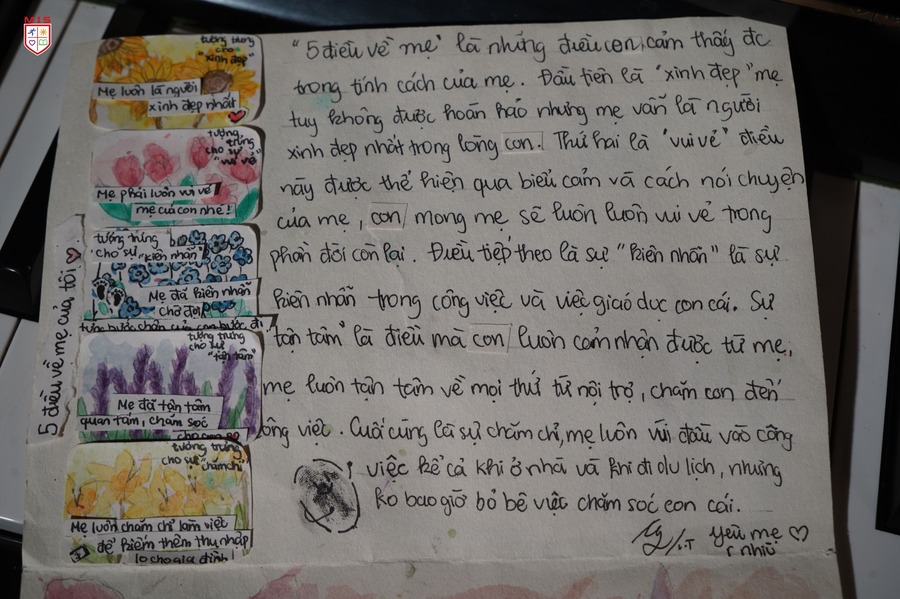 MIS
5 điều về mẹ của tôi
tượng trưng
cho
"xinh đẹp"
Mẹ luôn là người
xinh đẹp nhất
tượng
trưng
cho sự
"vui vẻ"
Mẹ phải luôn vui vẻ
mẹ của con nhé!
tượng trưng
cho sự "kiên nhẫn"
Mẹ đã kiên nhẫn
chờ đợi
từng bước chân của con bước đi
tượng trưng
cho sự
"tận tâm"
Mẹ đã tận tâm
quan tâm, chăm sóc
cho con
tượng trưng
cho sự "chăm chỉ"
Mẹ luôn chăm chỉ làm việc
để kiếm thêm thu nhập
lo cho gia đình!
"5 điều về mẹ" là những điều con cảm thấy đc
trong tính cách của mẹ. Đầu tiên là "xinh đẹp" mẹ
tuy không được hoàn hảo nhưng mẹ vẫn là người
xinh đẹp nhất trong lòng con. Thứ hai là "vui vẻ" điều
này được thể hiện qua biểu cảm và cách nói chuyện
của mẹ, con mong mẹ sẽ luôn luôn vui vẻ trong
phần đời còn lại. Điều tiếp theo là sự "kiên nhẫn" là sự
kiên nhẫn trong công việc và việc giáo dục con cái. Sự
"tận tâm" là điều mà con luôn cảm nhận được từ mẹ,
mẹ luôn tận tâm về mọi thứ từ nội trợ, chăm con đến
công việc. Cuối cùng là sự chăm chỉ, mẹ luôn vùi đầu vào công
việc kể cả khi ở nhà và khi đi du lịch, nhưng
ko bao giờ bỏ bê việc chăm sóc con cái.
yêu mẹ
nhìu